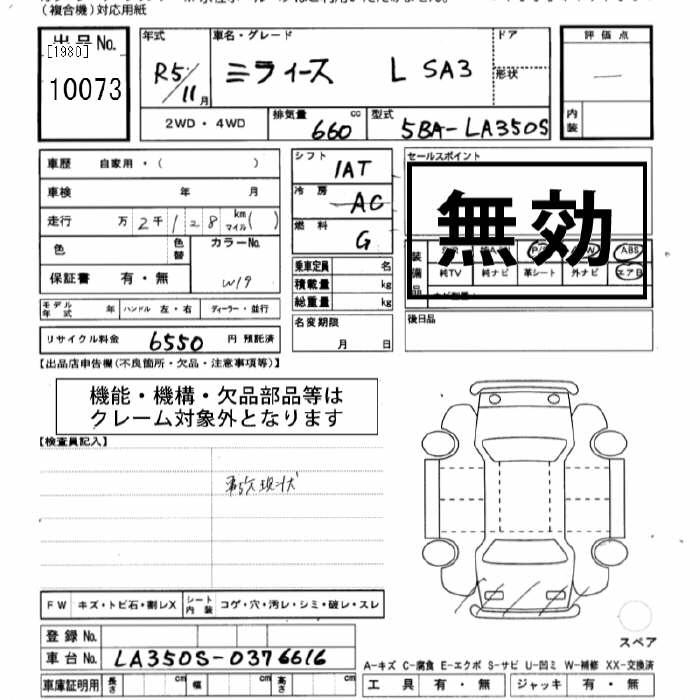 (複合機)対応用紙
出品 No.
[1980]
10073
年式 R5/11月
車名・グレード ミライース L SA3
ドア
形状
評価点
内装
2WD・4WD
排気量 660 cc
型式 5BA-LA350S
車歴 自家用・( )
車検 年 月
走行 万 2千 1 8 km マイル( )
色
色替
カラーNo. W19
保証書 有・無
モデル年式 年 ハンドル 左・右 ディーラー・並行
リサイクル料金 6550 円 預託済
シフト 1AT
冷房 AC
燃料 G
乗車定員 名
積載量 kg
総重量 kg
名変期限
月 日
セールスポイント
無効
装備品
ABS
純TV 純ナビ 革シート 外ナビ エアB
後日品
【出品店申告欄(不良箇所・欠品・注意事項等)】
機能・機構・欠品部品等は
クレーム対象外となります
【検査員記入】
事故現状
FW キズ・トビ石・割レX
シート内装 コゲ・穴・汚レ・シミ・破レ・スレ
登録 No.
車台 No. LA350S-0376616
車庫証明用 長さ cm 幅 cm 高さ cm
スペア
A-キズ C-腐食 E-エクボ S-サビ U-凹ミ W-補修 XX-交換済
工具 有・無 ジャッキ 有・無